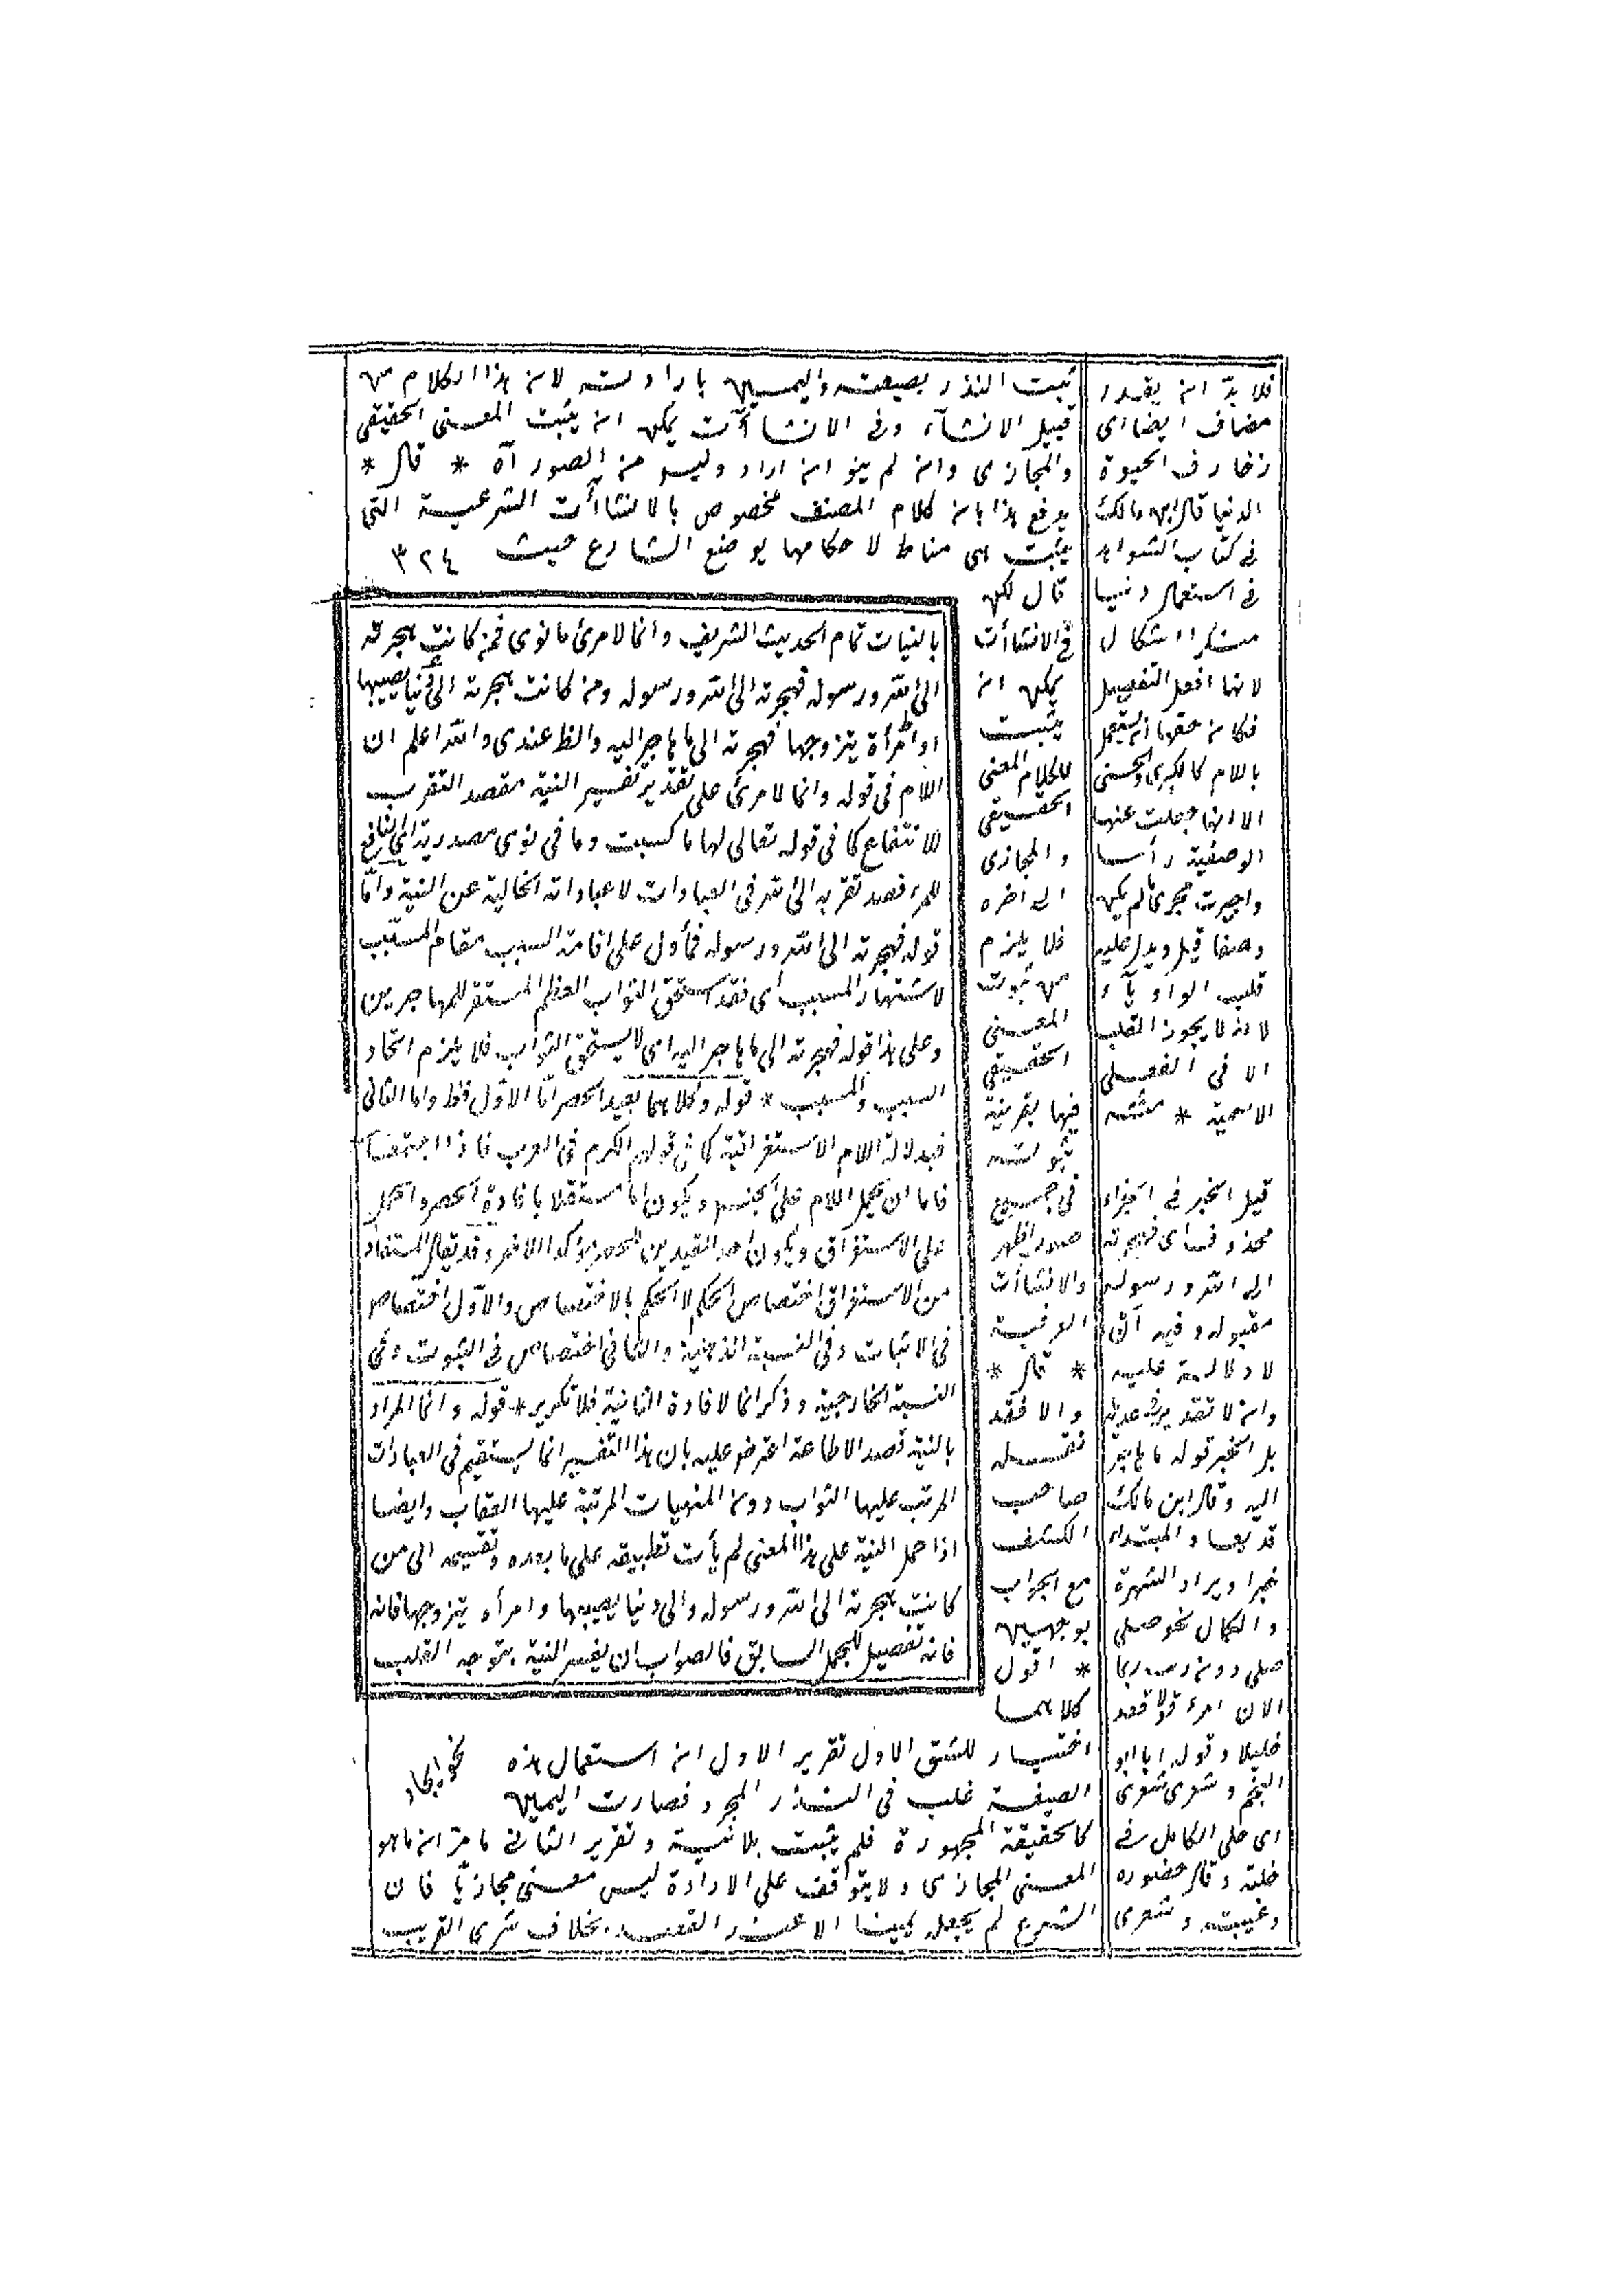 ثبت النذر بصيغته واليمين بارادته لان هذا الكلام من
قبيل الانشآء وفى الانشاآت يمكن ان يثبت المعنى الحقيقى
والمجازى وان لم ينو ان اراد وليس من الصور آه * قال *
يدفع هذا بان كلام المصنف مخصوص بالانشاآت الشرعية التى
يثبت اى مناط لاحكامها بوضع الشارع حيث ٣٢٤
قال لكن
فى الانشاآت
يمكن ان
يثبت
للكلام المعنى
الحقيقى
والمجازى
الى اخره
فلا يلزم
من ثبوت
المعنى
الحقيقى
فيها بقرينة
ثبوته
فى جميع
صور
والانشاآت
العرفية
* قال *
والا فقد
نقله
صاحب
الكشف
مع الجواب
بوجهين
* اقول
كلاهما
اختيار للشق الاول تقرير الاول ان استعمال هذه
الصيغة غلب فى النذر المجرد فصارت اليمين
كالحقيقة المهجورة فلم يثبت بلا نية وتقرير الثانى ما مر ان ما هو
المعنى المجازى ولا يتوقف على الارادة ليس معنى مجازيا فان
الشرع لم يجعله يمينا الا عند القصد بخلاف شرى القريب
نحو ايجاد
بالنيات تمام الحديث الشريف وانما لامرئ ما نوى فمن كانت هجرته
الى الله ورسوله فهجرته الى الله ورسوله ومن كانت هجرته الى دنيا يصيبها
او امرأة يتزوجها فهجرته الى ما هاجر اليه والظ عندى والله اعلم ان
اللام فى قوله وانما لامرئ على تقدير تفسير النية بقصد التقرب
للانتفاع كما فى قوله تعالى لها ما كسبت وما فى نوى مصدرية اى النافع
للمرء قصد تقربه الى الله فى العبادات لا عباداته الخالية عن النية واما
قوله فهجرته الى الله ورسوله فمأول على اقامة السبب مقام المسبب
لاشتهار المسبب اى فقد استحق الثواب العظيم المستقر للمهاجرين
وعلى هذا قوله فهجرته الى ما هاجر اليه اى لا يستحق الثواب فلا يلزم اتحاد
السبب والمسبب * قوله وكلاهما يفيد الحصر اما الاول فظ واما الثانى
فبدلالة اللام الاستغراقية كما فى قولهم الكرم فى العرب فاذا اجتمعا
فاما ان يحمل اللام على الجنس ويكون انما مستقلا بافادة الحصر او تحمل
على الاستغراق ويكون احد المقيدين للحصر مؤكدا للاخر وقد يقال المستفاد
من الاستغراق اختصاص الحكم لا الحكم بالاختصاص والاول اختصاص
فى الاثبات وفى النسبة الذهنية والثانى اختصاص فى الثبوت وفى
النسبة الخارجية وذكر انما لافادة الثانية فلا تكرير * قوله وانما المراد
بالنية قصد الاطاعة اعترض عليه بان هذا التفسير انما يستقيم فى العبادات
المرتب عليها الثواب دون المنهيات المرتبة عليها العقاب وايضا
اذا حمل النية على هذا المعنى لم يأت تطبيقه على ما بعده وتقسيمه الى من
كانت هجرته الى الله ورسوله والى دنيا يصيبها وامرأة يتزوجها فانه
فانه تفصيل للمجمل السابق فالصواب ان يفسر النية بتوجه القلب
فلا بد ان يقدر
مضاف ايضا اى
زخارف الحيوة
الدنيا قال ابن مالك
فى كتاب الشواهد
فى استعمال دنيا
منكرا اشكال
لانها افعل التفضيل
فكان حقها ان يستعمل
باللام كالكبرى والحسنى
الا انها جعلت عنها
الوصفية رأسا
واجريت مجرى ما لم يكن
وصفا قيل ويدل عليه
قلب الواو ياء
لانه لا يجوز القلب
الا فى الفعلى
الاسمية * منه
قيل الخبر فى الجزاء
محذوف اى فهجرته
الى الله ورسوله
مقبوله وفيه انه
لا دلالة عليه
وان لا تقدير
بل الخبر قوله ما هاجر
اليه وقال ابن مالك
قد والمبتداء
خبرا ويراد الشهرة
والكمال نحو خليلى
خليلى دون ريب ربما
الان امرؤ قولا فظن
خليلا وقوله انا ابو
النجم وشعرى شعرى
اى خلى الكامل فى
خلته وقال حضوره
وغيبته وشعرى